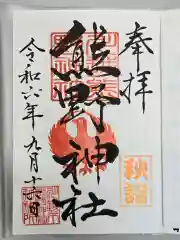 奉拝
熊野神社
秋詣
令和六年九月十六日